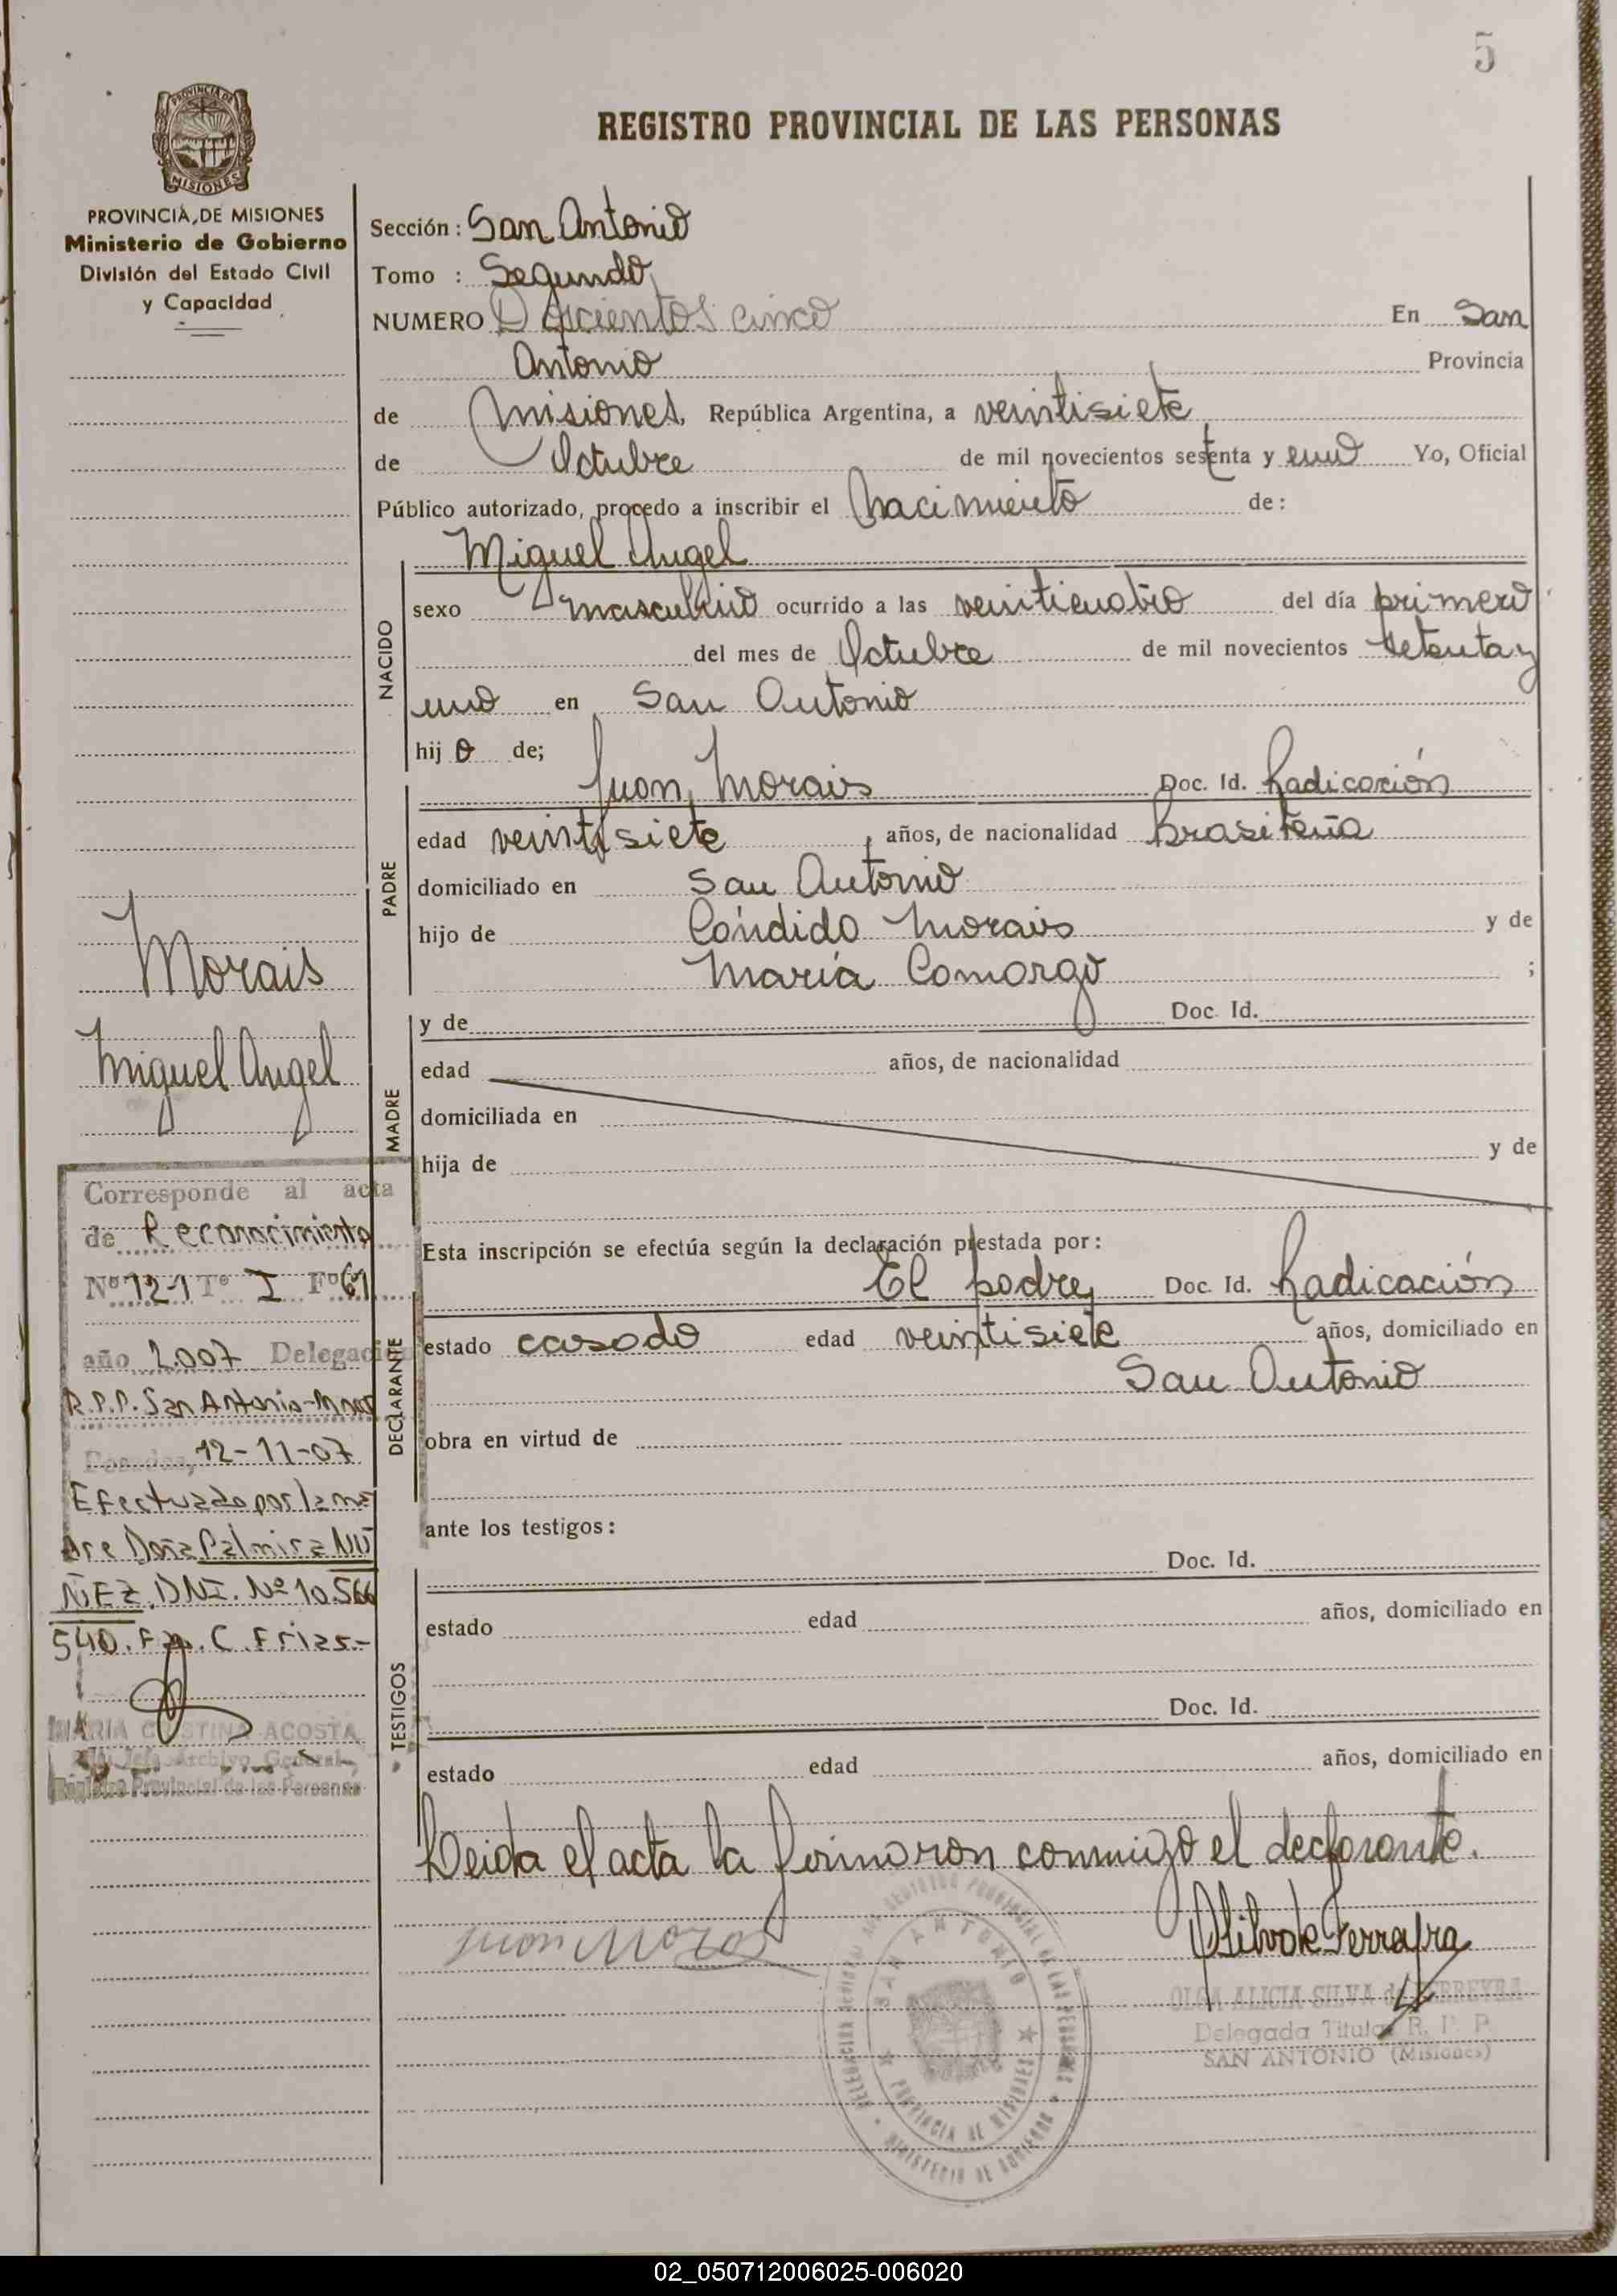 5
REGISTRO PROVINCIAL DE LAS PERSONAS
PROVINCIA DE
MISIONES
PROVINCIA DE MISIONES
Ministerio de Gobierno
División del Estado Civil
y Capacidad
Sección: San Antonio
Tomo : Segundo
NUMERO Doscientos cinco En San
Antonio Provincia
de Misiones, República Argentina, a veintisiete
de Octubre de mil novecientos sesenta y uno Yo, Oficial
Público autorizado, procedo a inscribir el Nacimiento de:
NACIDO
Miguel Angel
sexo masculino ocurrido a las veinticuatro del día primero
del mes de Octubre de mil novecientos setenta y
uno en San Antonio
hijo de;
PADRE
Juan Morais Doc. Id. Radicación
edad veintisiete, años, de nacionalidad brasileña
domiciliado en San Antonio
hijo de Cándido Morais y de
María Camargo ;
MADRE
y de Doc. Id.
edad años, de nacionalidad
domiciliada en
hija de y de
DECLARANTE
Esta inscripción se efectúa según la declaración prestada por:
El padre, Doc. Id. Radicación
estado casado edad veintisiete años, domiciliado en
San Antonio
obra en virtud de
ante los testigos:
TESTIGOS
Doc. Id.
estado edad años, domiciliado en
Doc. Id.
estado edad años, domiciliado en
Leida el acta la firmaron conmigo el declarante.
Juan
OLGA ALICIA SILVA de FERREYRA
Delegada Titular R. P. P.
SAN ANTONIO (Misiones)
SAN ANTONIO
PROVINCIA DE MISIONES
MINISTERIO DE GOBIERNO
Morais
Miguel Angel
Corresponde al acta
de Reconocimiento
Nº 121 Tº I Fº 61
año 2.007 Delegación
R.P.P. San Antonio-Mnes
Posadas, 12-11-07
Efectuado por la ma
dre Doña Palmira NÚ
ÑEZ. DNI. Nº 10.566
540. C. Frias.-
MARIA CRISTINA ACOSTA
Jefa Archivo General
Registro Provincial de las Personas
02_050712006025-006020